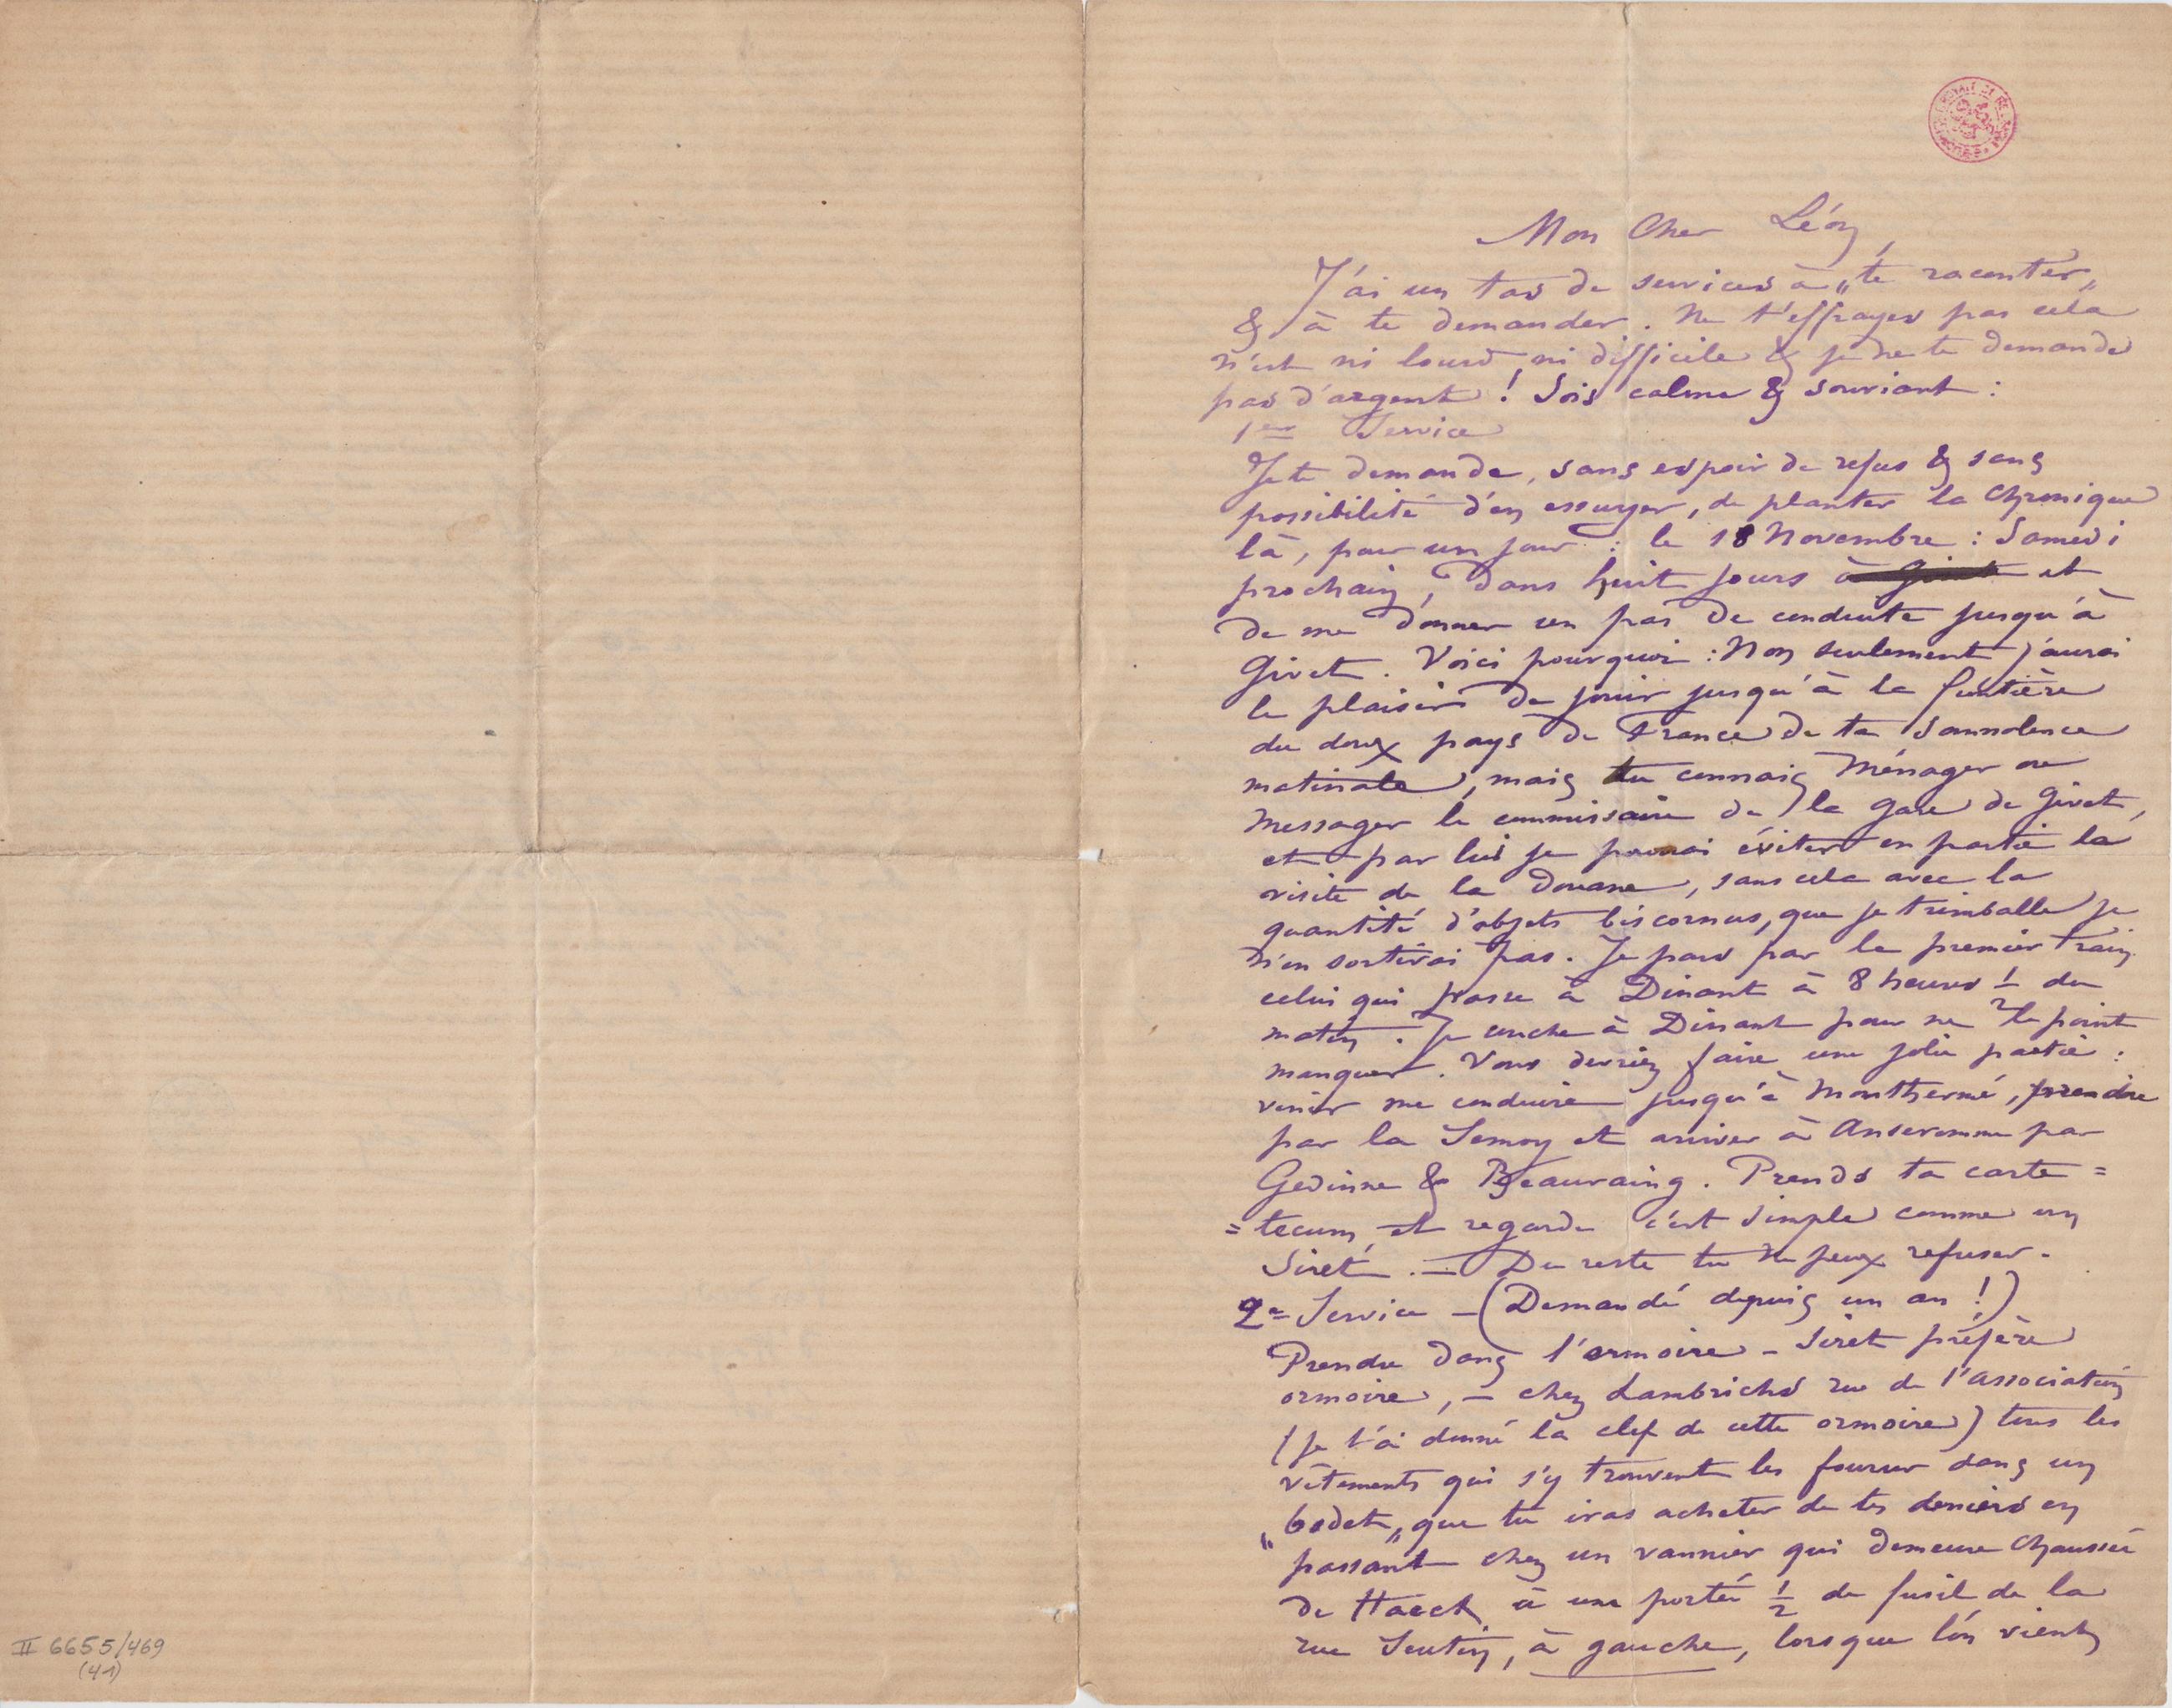 Mon Cher Léon,
J'ai un tas de services à „te raconter„
& à te demander. Ne t'effrayes pas cela
n'est ni lourd, ni difficile & je ne te demande
pas d'argent ! Sois calme & souriant :
1er Service
Je te demande, sans espoir de refus & sans
possibilité d'en essuyer, de planter la Chronique
là, pour un jour : le 18 Novembre : Samedi
prochain, dans huit jours à Givet et
de me donner un pas de conduite jusqu'à
Givet. Voici pourquoi : Non seulement j'aurai
le plaisir de jouir jusqu'à la frontière
du doux pays de France de ta somnolence
matinale, mais tu connais Ménager ou
Messager le commissaire de la gare de Givet,
et par lui je pourrai éviter en partie la
visite de la Douane, sans cela avec la
quantité d'objets biscornus, que je trimballe je
n'en sortirai pas. Je pars par le premier train
celui qui passe à Dinant à 8 heures 1/2 du
matin. Je couche à Dinant pour ne le point
manquer. Vous devriez faire une jolie partie :
venir me conduire jusqu'à Monthermé, prendre
par la Semoy et arriver à Anseremme par
Gedinne & Beauraing. Prends ta carte =
= tecum, et regarde c'est simple comme un
Siret. — Du reste tu ne peux refuser.
2e Service — (Demandé depuis un an !)
Prendre dans l'armoire — Siret préfère
ormoire, — chez Lambrichs rue de l'association
(je t'ai donné la clef de cette ormoire) tous les
vêtements qui s'y trouvent les fourrer dans un
„bodet„ que tu iras acheter de tes deniers en
passant chez un vannier qui demeure Chaussée
de Haeck à une portée 1/2 de fusil de la
rue Seutin, à gauche, lorsque l'on vient
II 6655/469
(41)